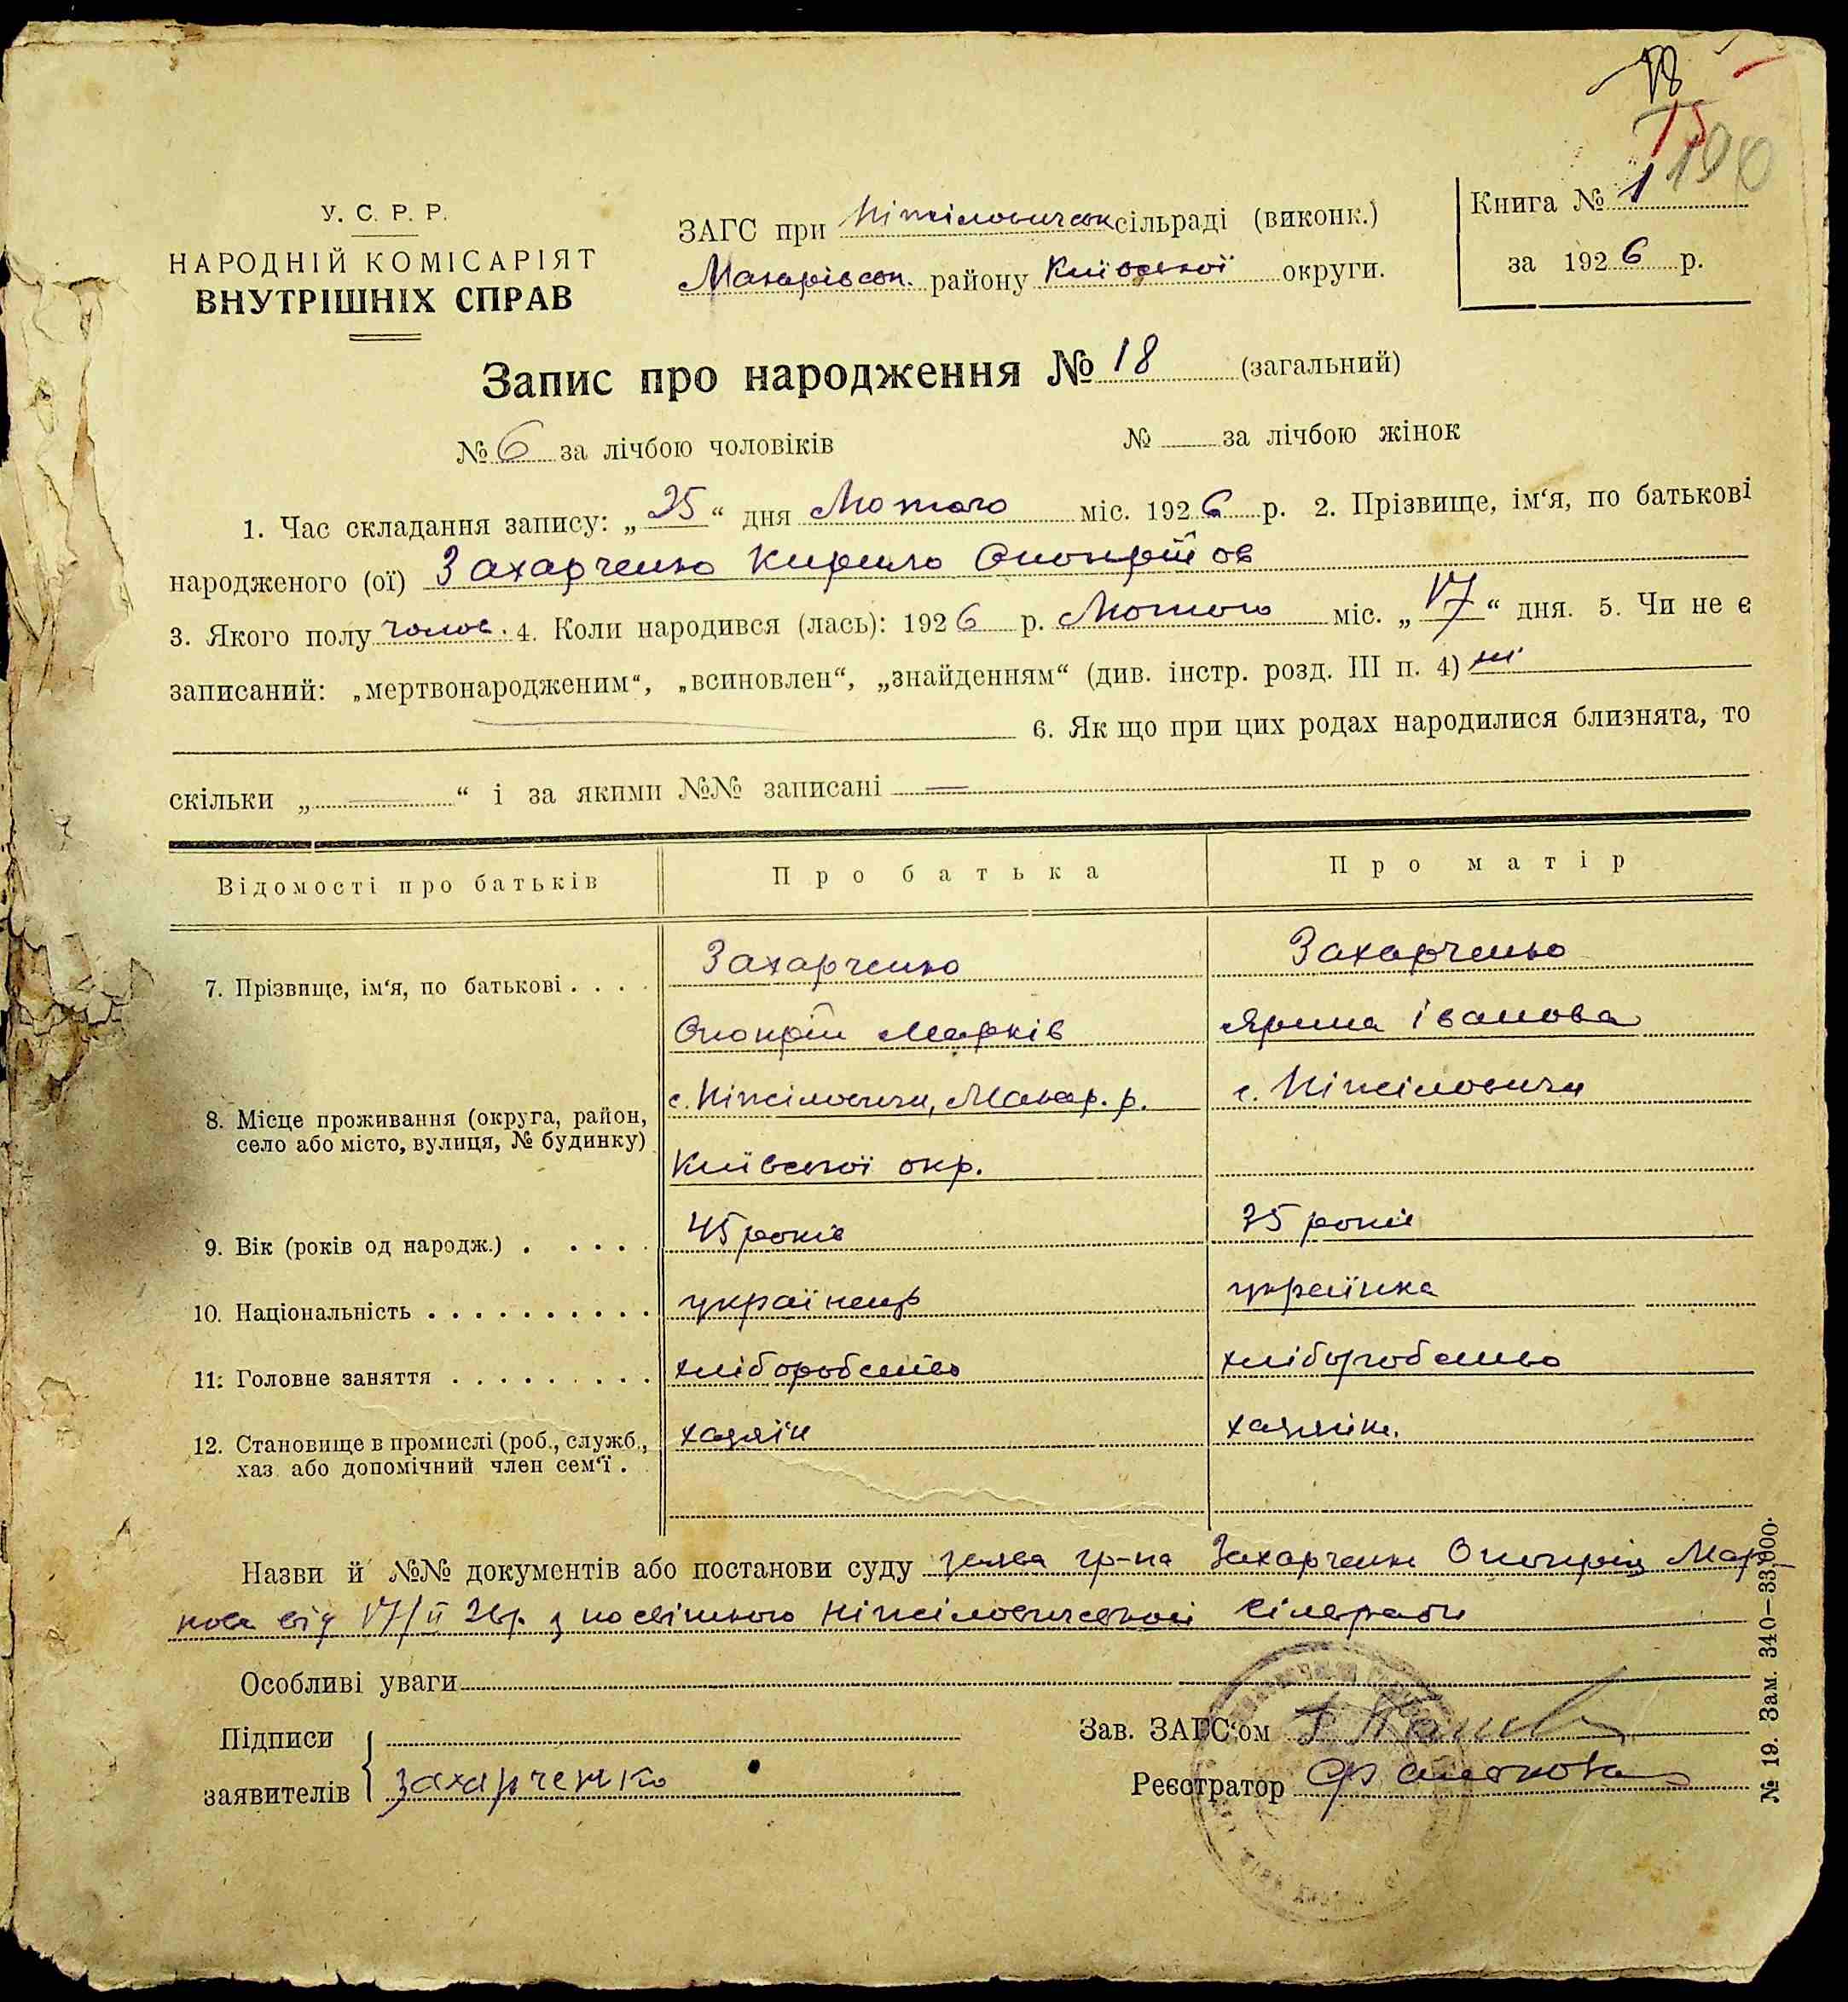 78
15
190
У. С. Р. Р.
НАРОДНІЙ КОМІСАРІЯТ
ВНУТРІШНІХ СПРАВ
ЗАГС при Ніжіловичськ сільраді (виконк.)
Макарівськ. району Київської округи.
Книга № 1
за 1926 р.
Запис про народження № 18 (загальний)
№ 6 за лічбою чоловіків № за лічбою жінок
1. Час складання запису: „25“ дня Лютого міс. 1926 р. 2. Прізвище, ім‘я, по батькові
народженого (ої) Захарченко Кирило Онопріїв
3. Якого полу чолов. 4. Коли народився (лась): 1926 р. Лютого міс. „17“ дня. 5. Чи не є
записаний: „мертвонародженим“, „всиновлен“, „знайденням“ (див. інстр. розд. III п. 4) ні
6. Як що при цих родах народилися близнята, то
скільки „ — “ і за якими №№ записані —
Відомості про батьків Про батька Про матір
7. Прізвище, ім‘я, по батькові . . . . Захарченко Захарченко
Онопрій Марків Ярина Іванова
8. Місце проживання (округа, район, село або місто, вулиця, № будинку) с. Ніжіловичи, Макар. р. с. Ніжіловичи
Київської окр.
9. Вік (років од народж.) . . . . . 45 років 35 років
10. Національність . . . . . . . . . . українець українка
11. Головне заняття . . . . . . . . . хліборобство хліборобство
12. Становище в промислі (роб., служб., хаз. або допомічний член сем‘ї . хазяїн хазяйк.
Назви й №№ документів або постанови суду заява гр-на Захарченк Онопрія Мар-
кова від 17/II 26р. з посвідкою Ніжіловичської сільради
Особливі уваги
Підписи
заявителів Захарченко
Зав. ЗАГС‘ом
Реєстратор
№ 19. Зам. 340—33.000.